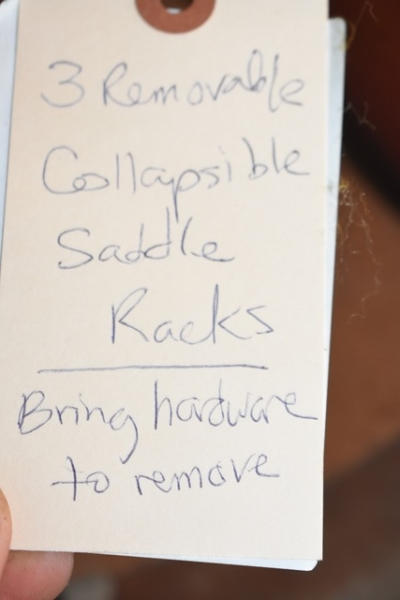 3 Removable
Collapsible
Saddle
Racks
Bring hardware
to remove